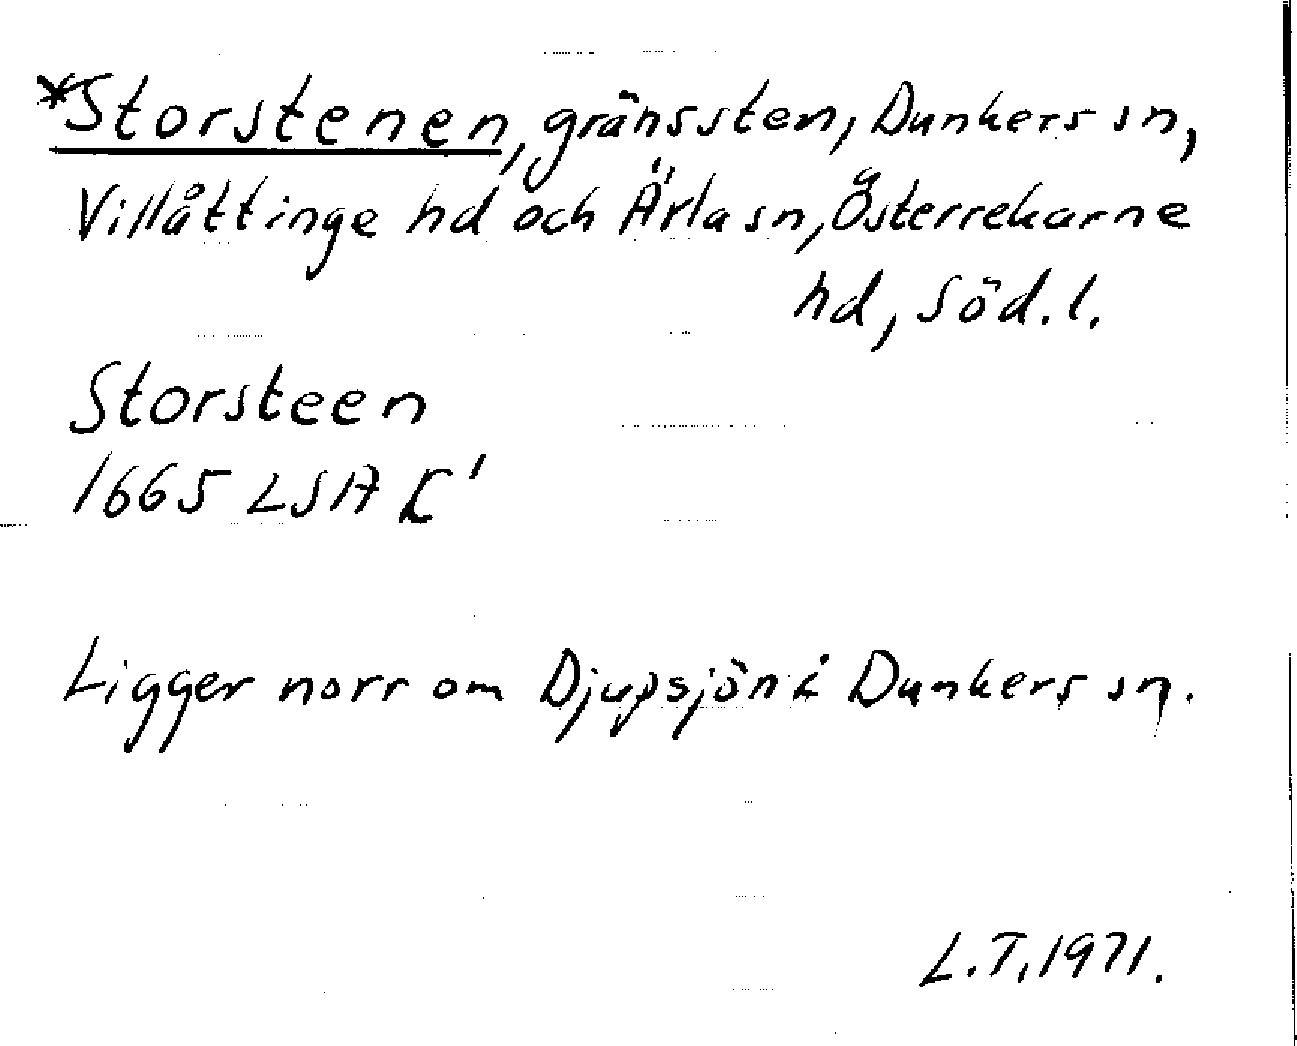 *Storstenen, gränssten, Dunkers sn,
Villåttinge hd och Ärla sn, Österrekarne
hd, Söd. l.
Storsteen
1665 LSA C'
Ligger norr om Djupsjön i Dunkers sn.
L.T. 1971.